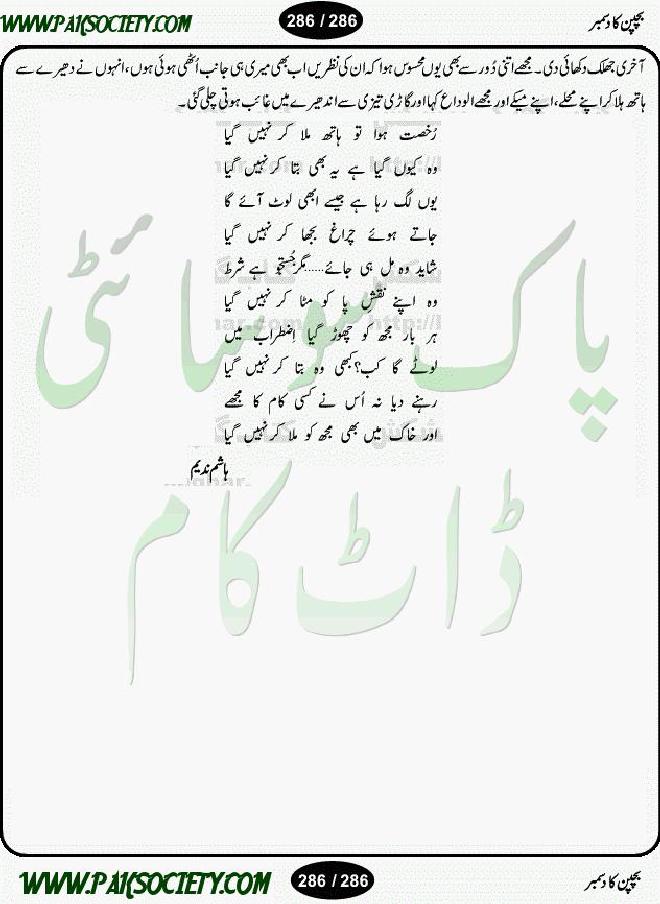 WWW.PAKSOCIETY.COM 286 / 286 بچپن کا دسمبر
آخری جھلک دکھائی دی۔ مجھے اتنی دُور سے بھی یوں محسوس ہوا کہ ان کی نظریں اب بھی میری ہی جانب اُٹھی ہوئی ہوں، انہوں نے دھیرے سے
ہاتھ ہلا کر اپنے محلے، اپنے میکے اور مجھے الوداع کہا اور گاڑی تیزی سے اندھیرے میں غائب ہوتی چلی گئی۔
رُخصت ہوا تو ہاتھ ملا کر نہیں گیا
وہ کیوں گیا ہے یہ بھی بتا کر نہیں گیا
یوں لگ رہا ہے جیسے ابھی لوٹ آئے گا
جاتے ہوئے چراغ بجھا کر نہیں گیا
شاید وہ مل ہی جائے.....مگر جُستجو ہے شرط
وہ اپنے نقشِ پا کو مٹا کر نہیں گیا
ہر بار مجھ کو چھوڑ گیا اِضطراب میں
لوٹے گا کب؟ کبھی وہ بتا کر نہیں گیا
رہنے دیا نہ اُس نے کسی کام کا مجھے
اور خاک میں بھی مجھ کو ملا کر نہیں گیا
ہاشم ندیم
پاک سوسائٹی
ڈاٹ کام
WWW.PAKSOCIETY.COM 286 / 286 بچپن کا دسمبر